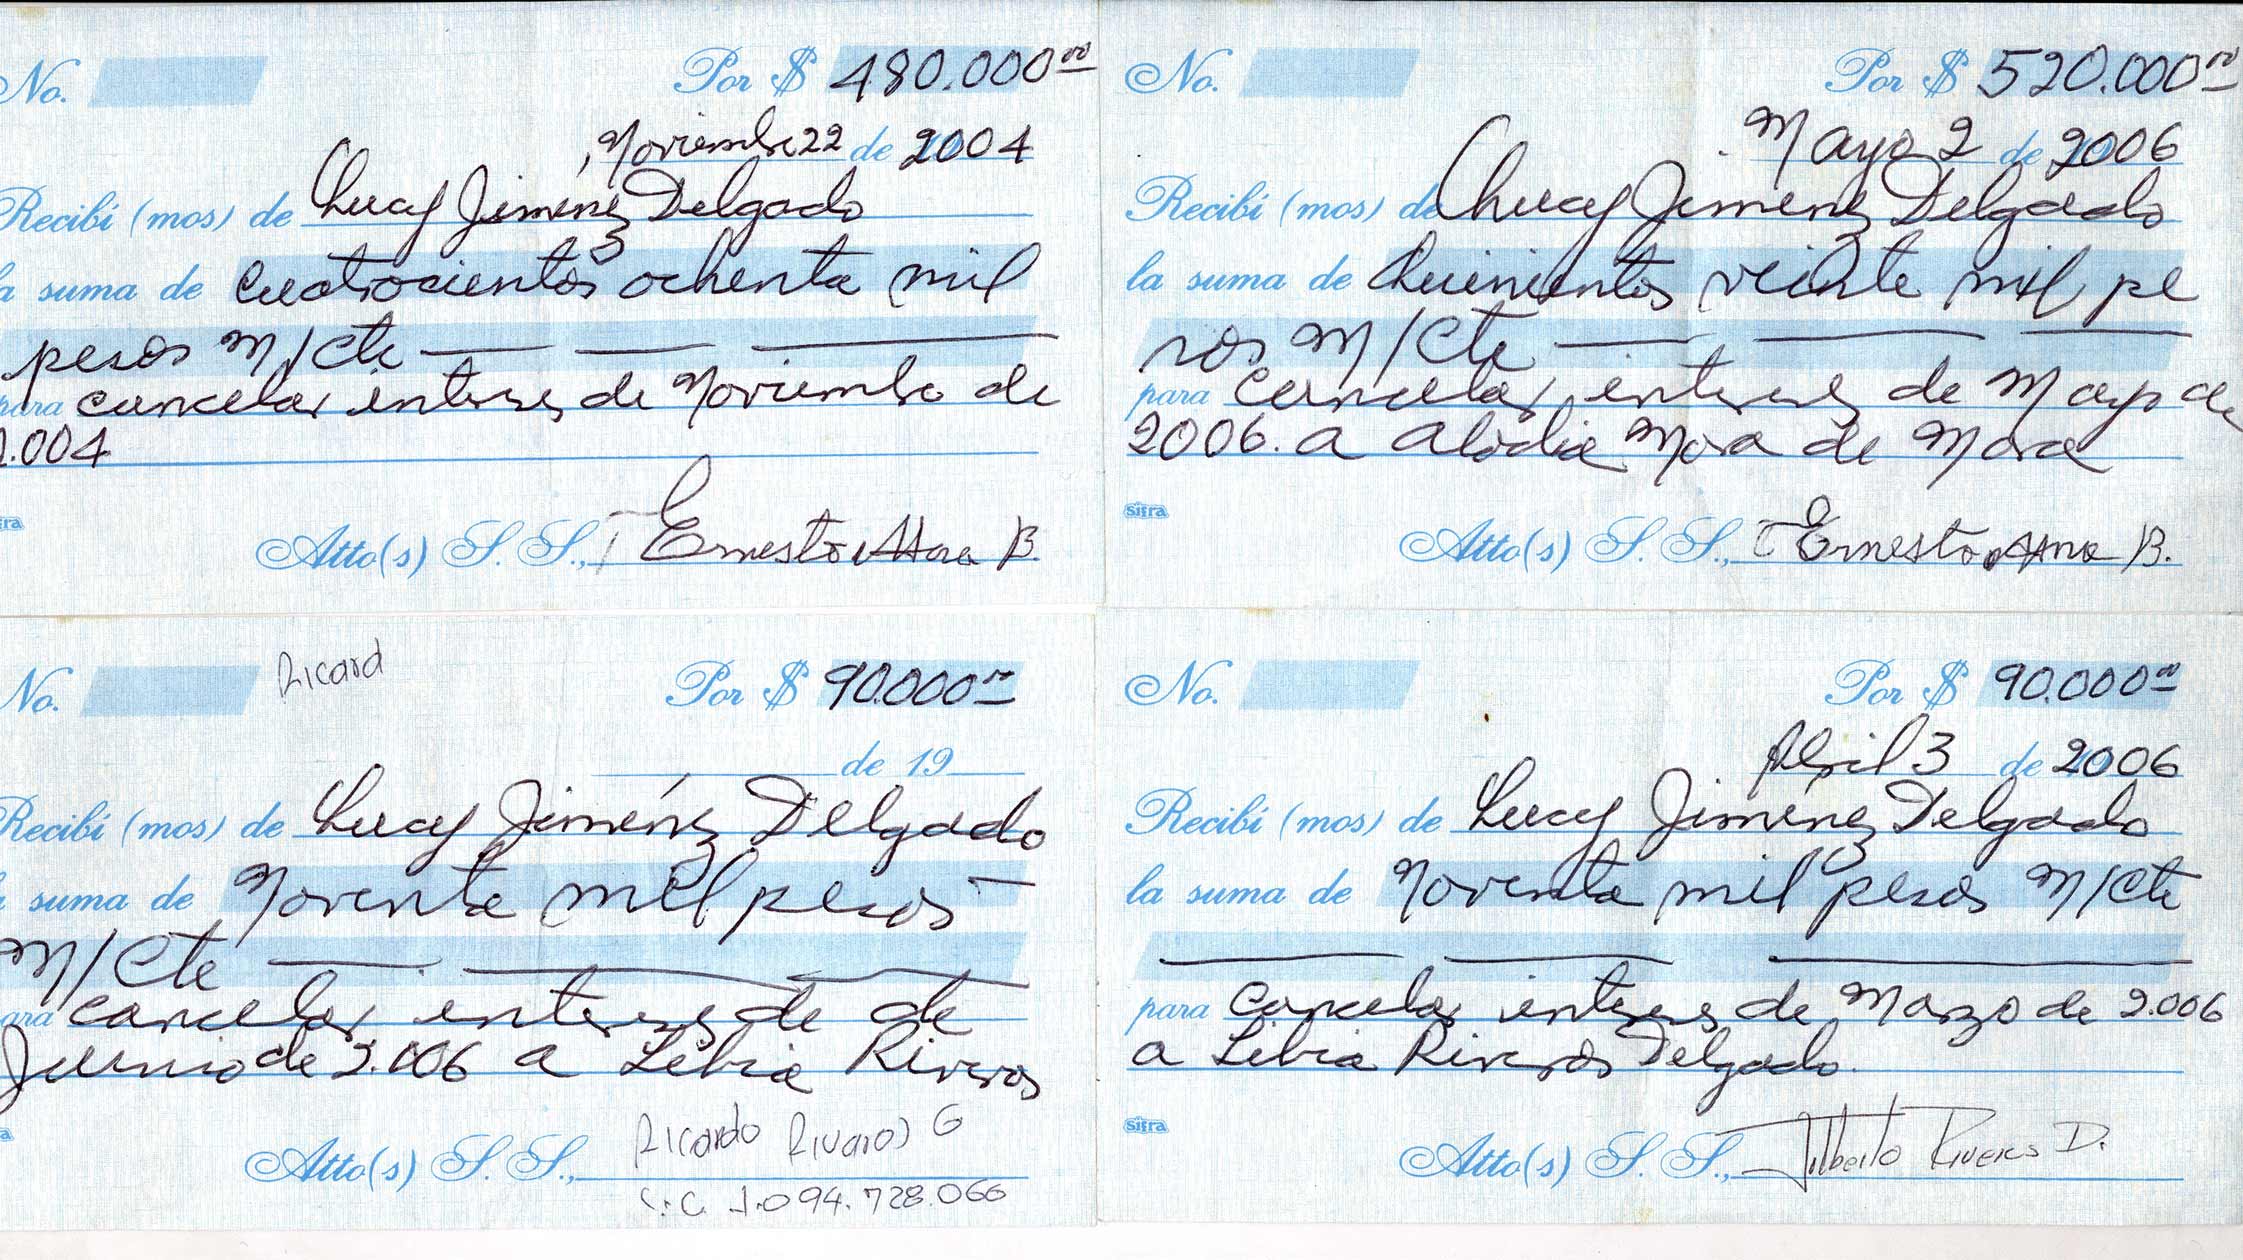 No. Por $ 480.000 00
Noviembre 22 de 2004
Recibí (mos) de Lucy Jiménez Delgado
la suma de Cuatrocientos ochenta mil
pesos M/Cte
para cancelar intereses de Noviembre de
2.004
Atto(s) S. S., Ernesto Mora B.
No. Por $ 520.000 00
Mayo 2 de 2006
Recibí (mos) de Lucy Jiménez Delgado
la suma de Quinientos veinte mil pe
sos M/Cte
para cancelar intereses de Mayo de
2006. a Alodia Mora de Mora
sifra
Atto(s) S. S., Ernesto Mora B.
No. Ricard Por $ 90.000 00
de 19
Recibí (mos) de Lucy Jiménez Delgado
la suma de Noventa mil pesos
M/Cte
para cancelar intereses de de
Junio de 2.006 a Libia Riveros
Atto(s) S. S., Ricardo Riveros G
C.C 1.094.728.066
No. Por $ 90.000 00
Abril 3 de 2006
Recibí (mos) de Lucy Jiménez Delgado
la suma de Noventa mil pesos M/Cte
para cancelar intereses de Marzo de 2.006
a Libia Riveros Delgado.
sifra
Atto(s) S. S., Jilberto Riveros D.